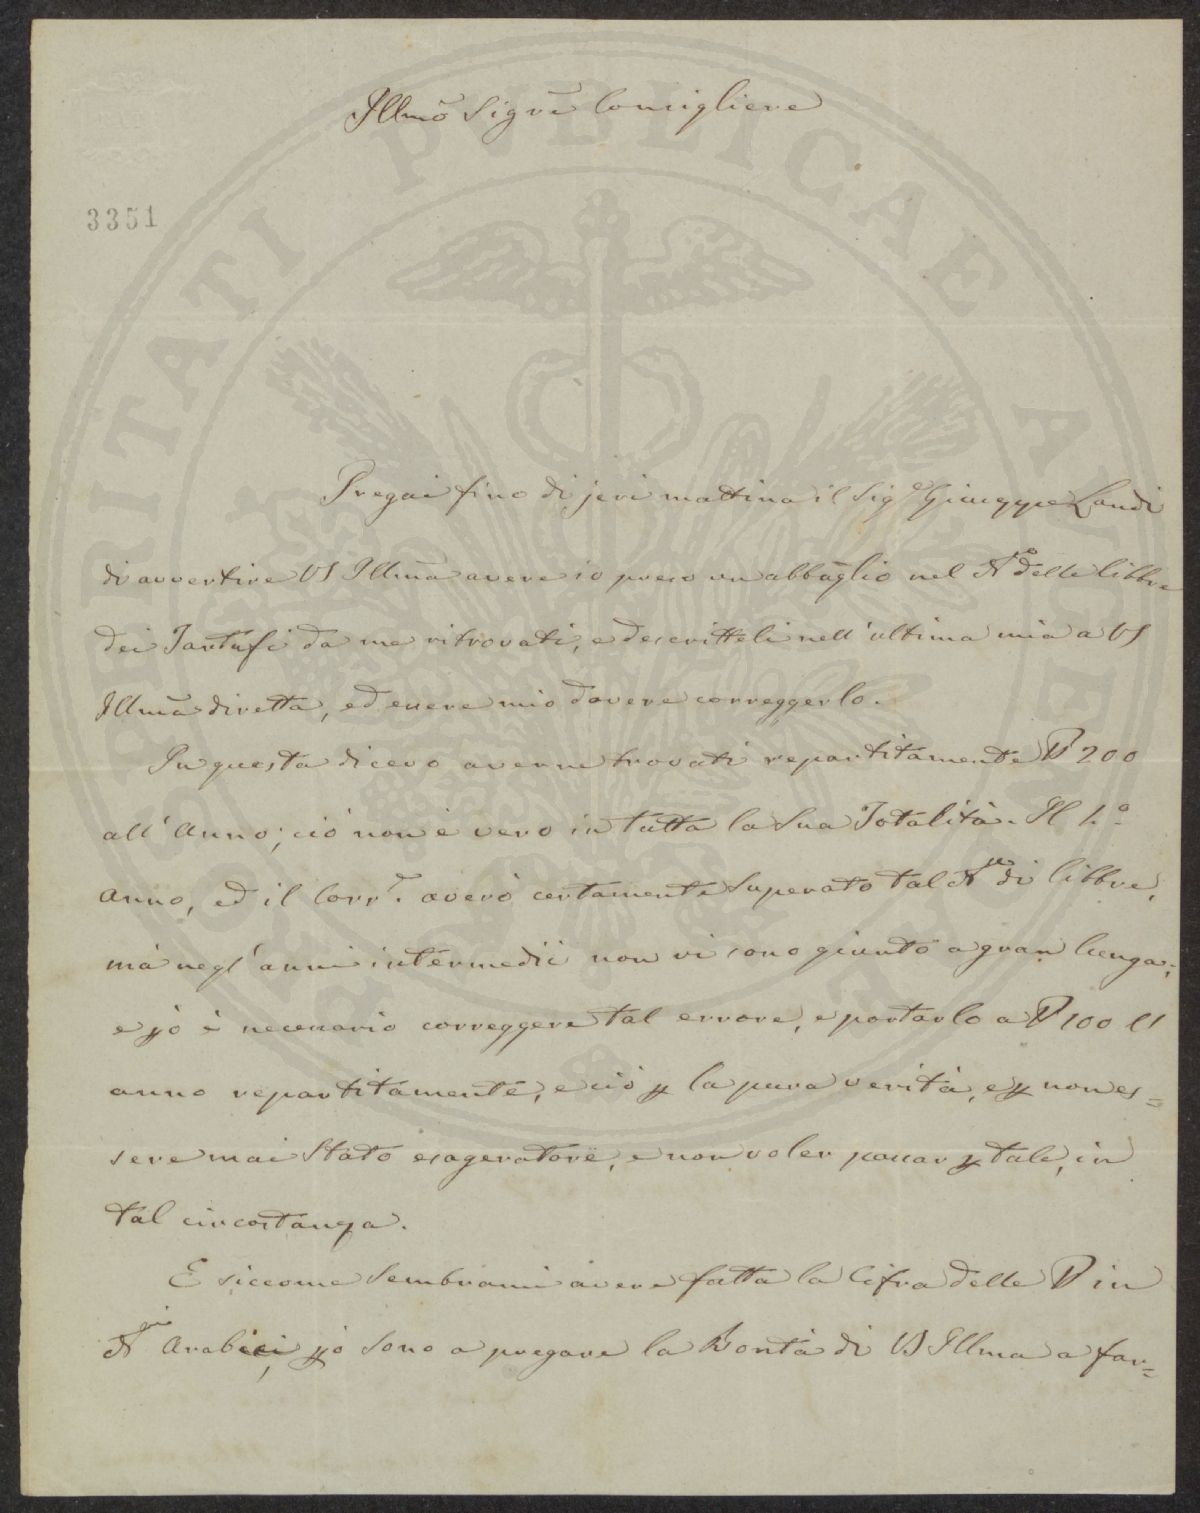 Illmo Sigre Consigliere
3351
Pregai fino di jeri mattina il Sige Giuseppe Landi
di avvertire VS Illma avere io preso un abbaglio nel No delle libbre
dei Tartufi da me ritrovati, e descritteli nell'ultima mia a VS
Illma diretta, ed essere mio dovere correggerlo.
In questa dicevo averne trovati repartitamente ℔ 200
all'Anno; ciò non è vero in tutta la Sua Totalità. Il 1.o
anno, ed il Corre. averò certamente Superato tal No di libbre,
mà negl'anni intermedii non vi sono giunto a gran lunga;
e pò è necessario correggere tal errore, e portarlo a ℔ 100 l'
anno repartitamente, e ciò p la pura verità, e p non es=
sere mai Stato esageratore, e non voler passar p tale, in
tal circostanza.
E siccome Sembrami avere fatta la Cifra delle ℔ in
Nri Arabici, pò Sono a pregare la Bontà di VS Illma a far=
PVBLICAE